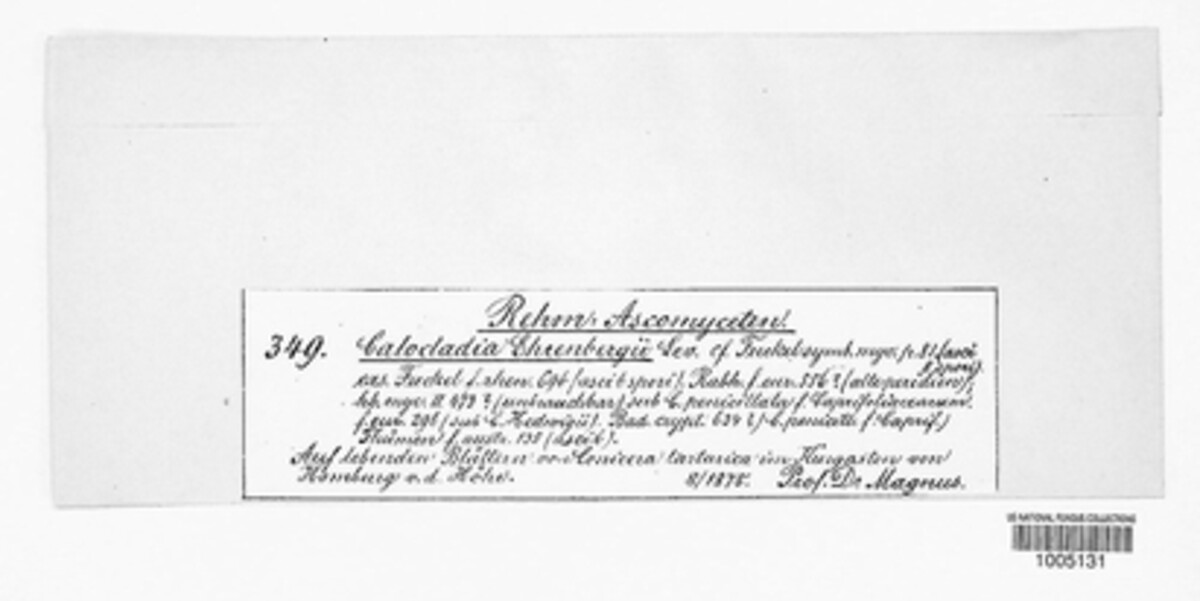 Rehm: Ascomyceten.
349. Calocladia Ehrenbergii Lev. cf. Fuckel symb. myc. p. 81 (asci
6 spori).
exs. Fuckel f. rhen. 696 (asci 6 spori). Rabh. f. eur. 556? (alte peridien),
myc. 479? (unbrauchbar) sub C. penicillata f. Caprifoliacearum.
f. eur. 291 (sub C. Hedwigii). Bad. crypt. 634? (C. penicill. f. Caprif.)
Thümen f. austr. 138 (asci 6).
Auf lebenden Blättern von Lonicera tartarica im Kurgarten von
Homburg v. d. Höhe. 8/1875. Prof. Dr Magnus.
US NATIONAL FUNGUS COLLECTIONS
1005131